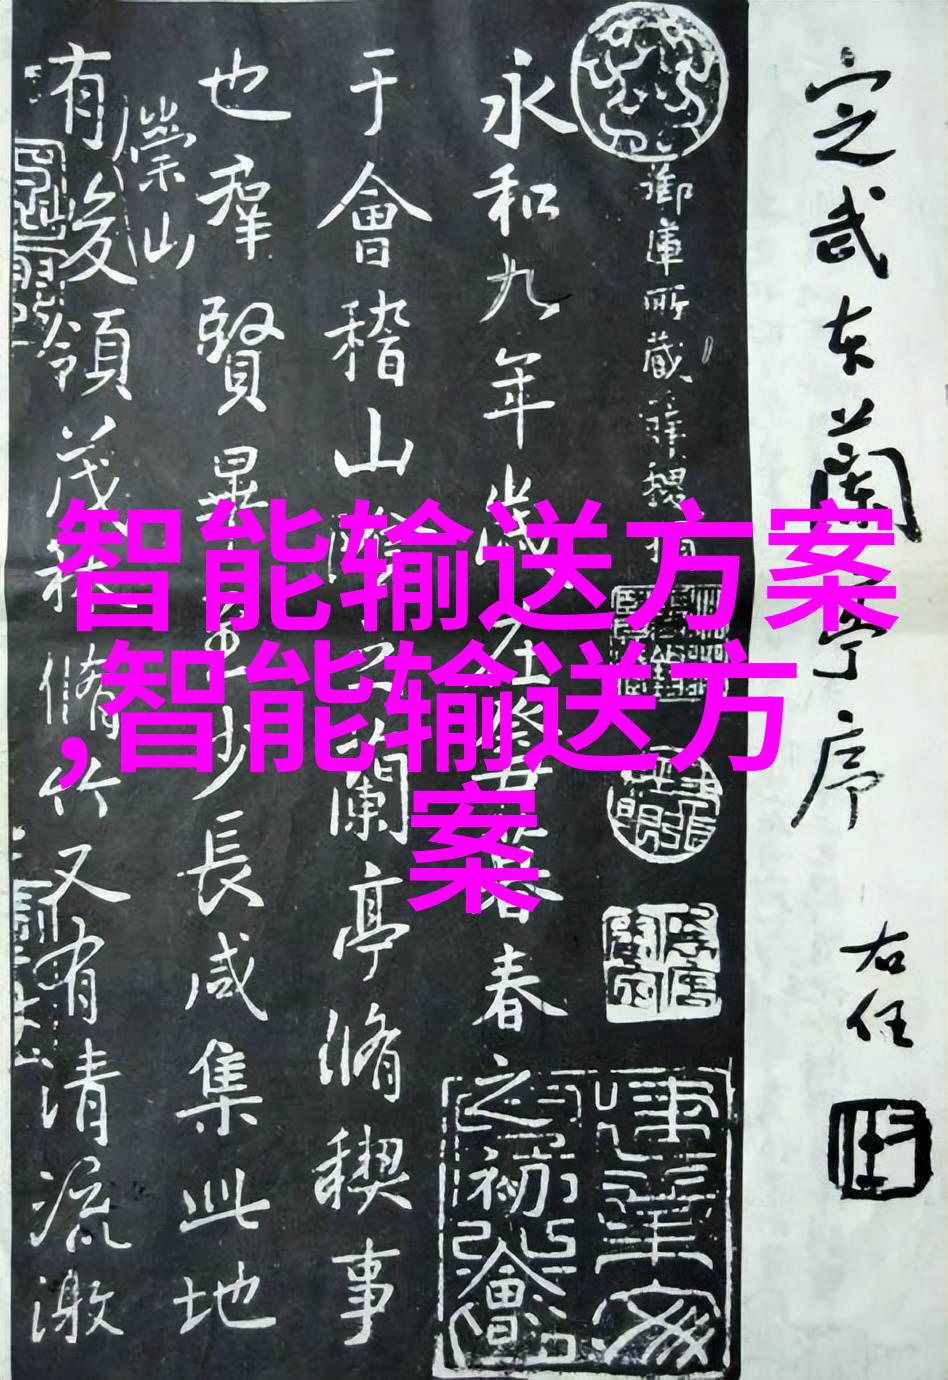 定武本蘭亭序
右任
御庫所藏
永和九年歲在癸丑暮春之初會
于會稽山陰之蘭亭脩稧事
也羣賢畢至少長咸集此地
有崇山
峻領茂林脩竹又有清流激
智能输送方案
,智能输送方
案